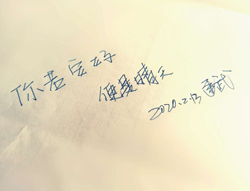 你若安好
便是晴天
2020.2.13